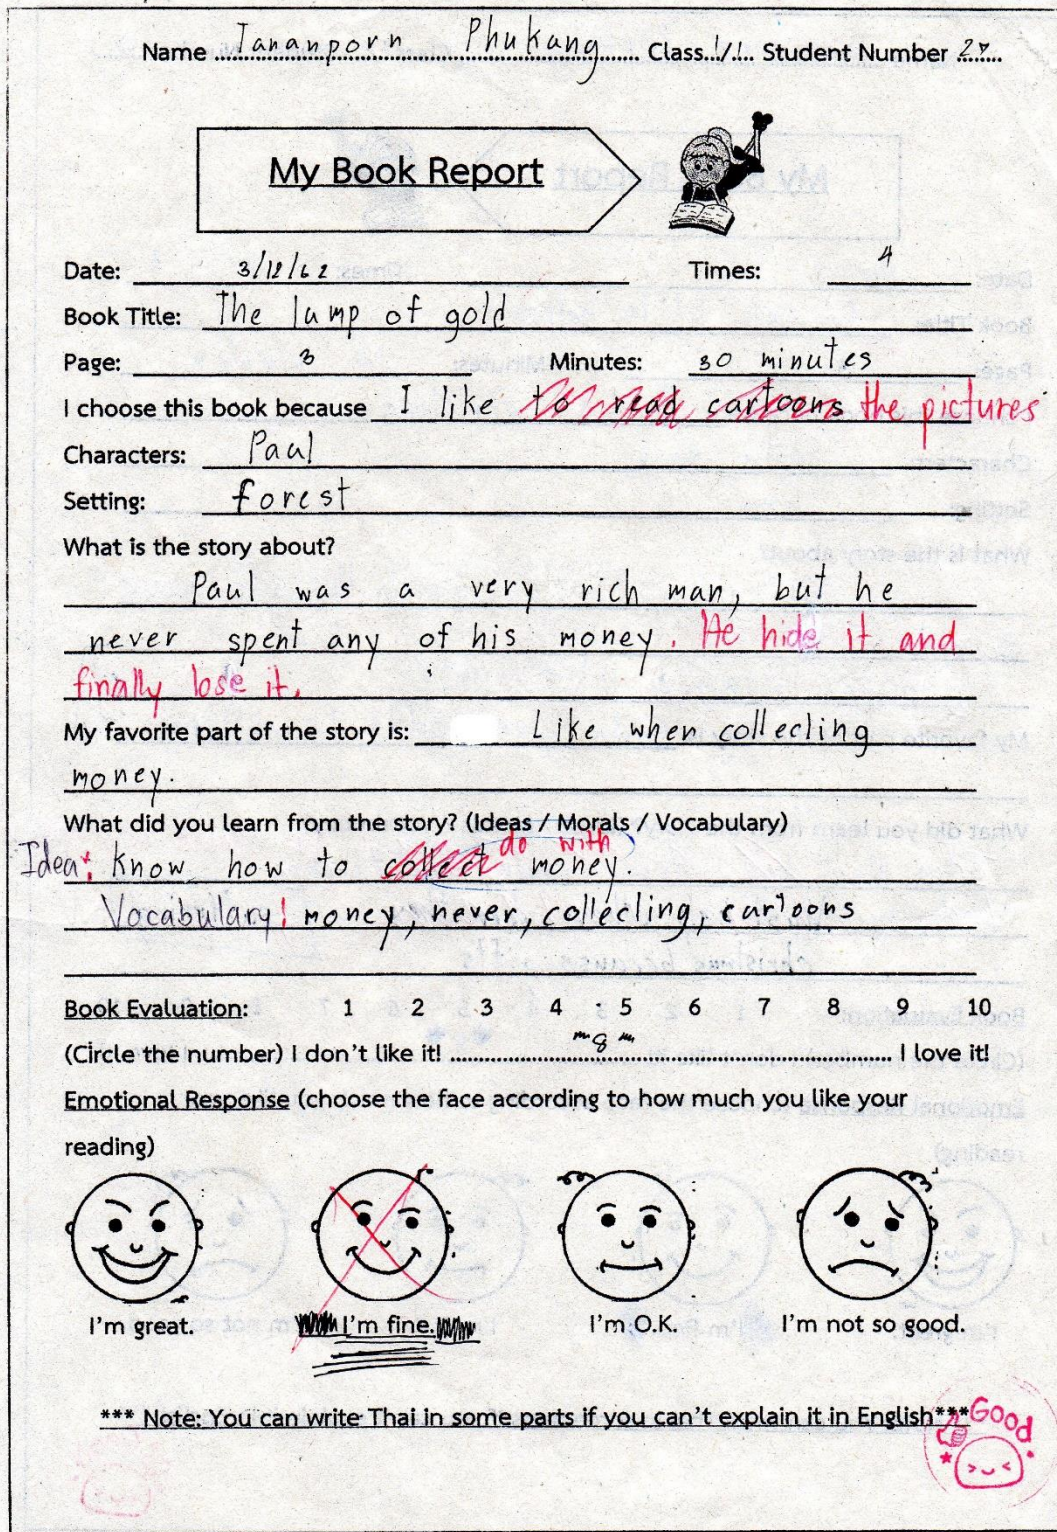 Name Tananporn Phukang Class 1/1 Student Number 27
My Book Report
Date: 3/12/62 Times: 4
Book Title: The lump of gold
Page: 3 Minutes: 30 minutes
I choose this book because I like to read cartoons the pictures
Characters: Paul
Setting: forest
What is the story about?
Paul was a very rich man, but he
never spent any of his money. He hide it and
finally lose it.
My favorite part of the story is: Like when collecling
money.
What did you learn from the story? (Ideas / Morals / Vocabulary)
Idea: know how to collect do with money.
Vocabulary! money, never, collecling, cartoons
Book Evaluation: 1 2 3 4 5 6 7 8 9 10
(Circle the number) I don't like it! ........ 8 ........ I love it!
Emotional Response (choose the face according to how much you like your
reading)
I'm great. I'm fine. I'm O.K. I'm not so good.
*** Note: You can write Thai in some parts if you can't explain it in English***
Good